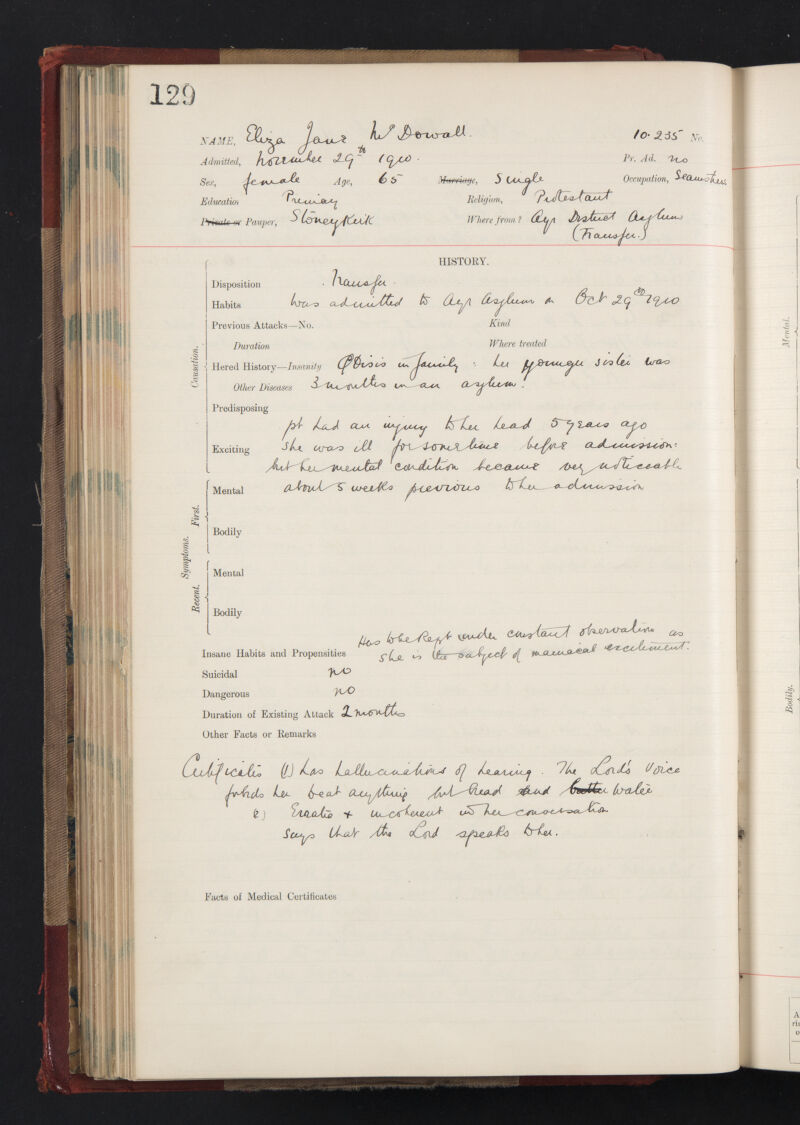 129
NAME, Eliza Jane McDowall. 10.235 No.
Admitted, November 29th 1910. Pr. Ad. no
Sex, female Age, 65 Marriage, Single Occupation, Seamstress
Education Primary Religion, Protestant
Private or Pauper, Stoneykirk Where from? Ayr District Asylum
(Transfer.)
HISTORY.
Disposition . Transfer.
Habits Was admitted to Ayr Asylum on Oct 29th 1910
Previous Attacks—No. Kind
Duration Where treated
Causation.
Hered History—Insanity in family : her younger sister was
Other Diseases 3 months in an asylum.
Predisposing
pt had an injury to her head 5 years ago
Exciting She was ill for some time before admission:
but her mental condition became very noticeable
Mental about 5 weeks previous to her admission
First.
Bodily
Symptoms.
Mental
Recent.
Bodily
Has to be kept under constant observation as
Insane Habits and Propensities She is the subject of maniacal excitement.
Suicidal no
Dangerous no
Duration of Existing Attack 2 months
Other Facts or Remarks
Certificates (1) has hallucinations of hearing. The Lord's Voice
forbids her to eat anything but bread and water
(2) Erratic + incoherent in her conversation
Says that the Lord speaks to her.
Facts of Medical Certificates
Mental.
Bodily.